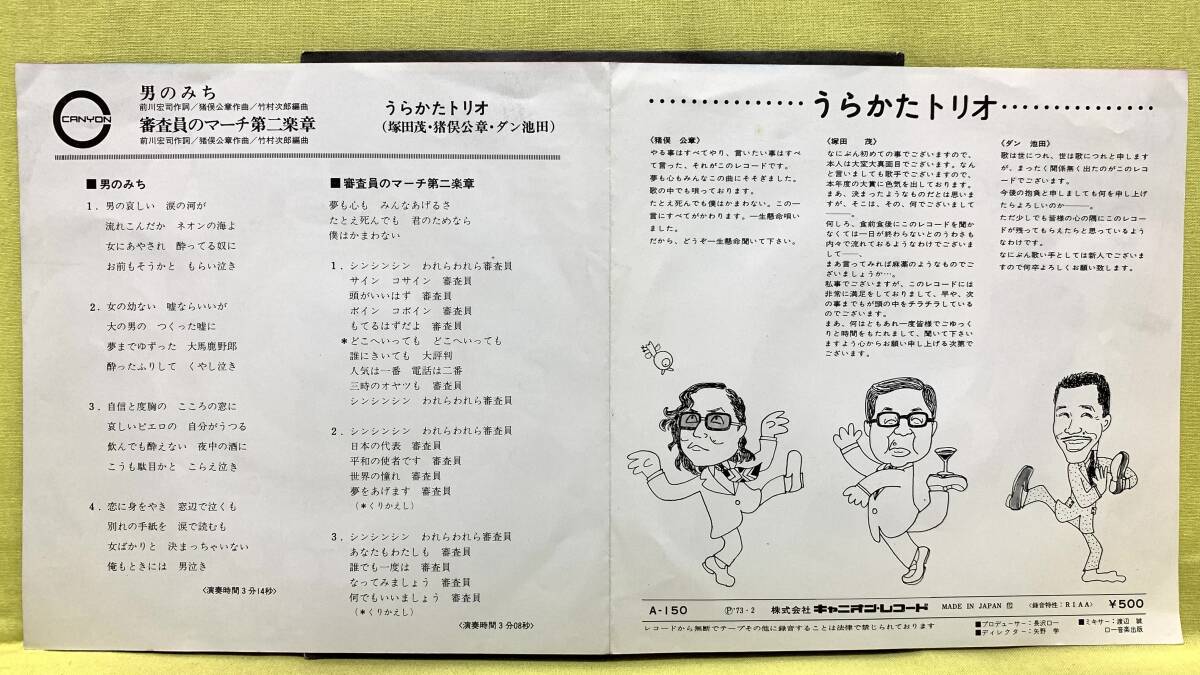 CANYON
男のみち
前川宏司作詞/猪俣公章作曲/竹村次郎編曲
審査員のマーチ第二楽章
前川宏司作詞/猪俣公章作曲/竹村次郎編曲
うらかたトリオ
(塚田茂・猪俣公章・ダン池田)
■男のみち
1. 男の哀しい 涙の河が
流れこんだか ネオンの海よ
女にあやされ 酔ってる奴に
お前もそうかと もらい泣き
2. 女の幼ない 嘘ならいいが
大の男の つくった嘘に
夢までゆずった 大馬鹿野郎
酔ったふりして くやし泣き
3. 自信と度胸の こころの窓に
哀しいピエロの 自分がうつる
飲んでも酔えない 夜中の酒に
こうも駄目かと こらえ泣き
4. 恋に身をやき 窓辺で泣くも
別れの手紙を 涙で読むも
女ばかりと 決まっちゃいない
俺もときには 男泣き
〈演奏時間3分14秒〉
■審査員のマーチ第二楽章
夢も心も みんなあげるさ
たとえ死んでも 君のためなら
僕はかまわない
1. シンシンシン われらわれら審査員
サイン コサイン 審査員
頭がいいはず 審査員
ボイン コボイン 審査員
もてるはずだよ 審査員
*どこへいっても どこへいっても
誰にきいても 大評判
人気は一番 電話は二番
三時のオヤツも 審査員
シンシンシン われらわれら審査員
2. シンシンシン われらわれら審査員
日本の代表 審査員
平和の使者です 審査員
世界の憧れ 審査員
夢をあげます 審査員
(*くりかえし)
3. シンシンシン われらわれら審査員
あなたもわたしも 審査員
誰でも一度は 審査員
なってみましょう 審査員
何でもいいましょう 審査員
(*くりかえし)
〈演奏時間3分08秒〉
…………うらかたトリオ…………
〈猪俣 公章〉
やる事はすべてやり、言いたい事はすべ
て言った、それがこのレコードです。
夢も心もみんなこの曲にそそぎました。
歌の中でも唄っております。
たとえ死んでも僕はかまわない。この一
言にすべてがかわります。一生懸命唄い
ました。
だから、どうぞ一生懸命聞いて下さい。
〈塚田 茂〉
なにぶん初めての事でございますので、
本人は大変大真面目でございます。なん
と言いましても歌手でございますので、
本年度の大賞に色気を出しております。
まあ、決まったようなものだとは思いま
すが、そこは、その、何でございまして
――。
何しろ、食前食後にこのレコードを聞か
なくては一日が終わらないとのうわさも
内々で流れておるようなわけでございま
して――、
まあ言ってみれば麻薬のようなものでご
ざいましょうか…。
私事でございますが、このレコードには
非常に満足をしておりまして、早や、次
の事までもが頭の中をチラチラしている
のでございます。
まあ、何はともあれ一度皆様でごゆっく
りと時間をもたれまして、聞いて下さい
ますよう心からお願い申し上げる次第で
ございます。
〈ダン 池田〉
歌は世につれ、世は歌につれと申します
が、まったく関係無く出たのがこのレコ
ードでございます。
今後の抱負と申しましても何を申し上げ
たらよろしいのか――。
ただ少しでも皆様の心の隅にこのレコー
ドが残ってもらえたらと思っているよう
なわけです。
なにぶん歌い手としては新人でございま
すので何卒よろしくお願い致します。
A-150 Ⓟ'73・2 株式会社 キャニオン・レコード MADE IN JAPAN 〈録音特性:RIAA〉 ¥500
レコードから無断でテープその他に録音することは法律で禁じられております
■プロデューサー:長沢ロー ■ミキサー:渡辺 誠
■ディレクター:矢野 学 ロー音楽出版